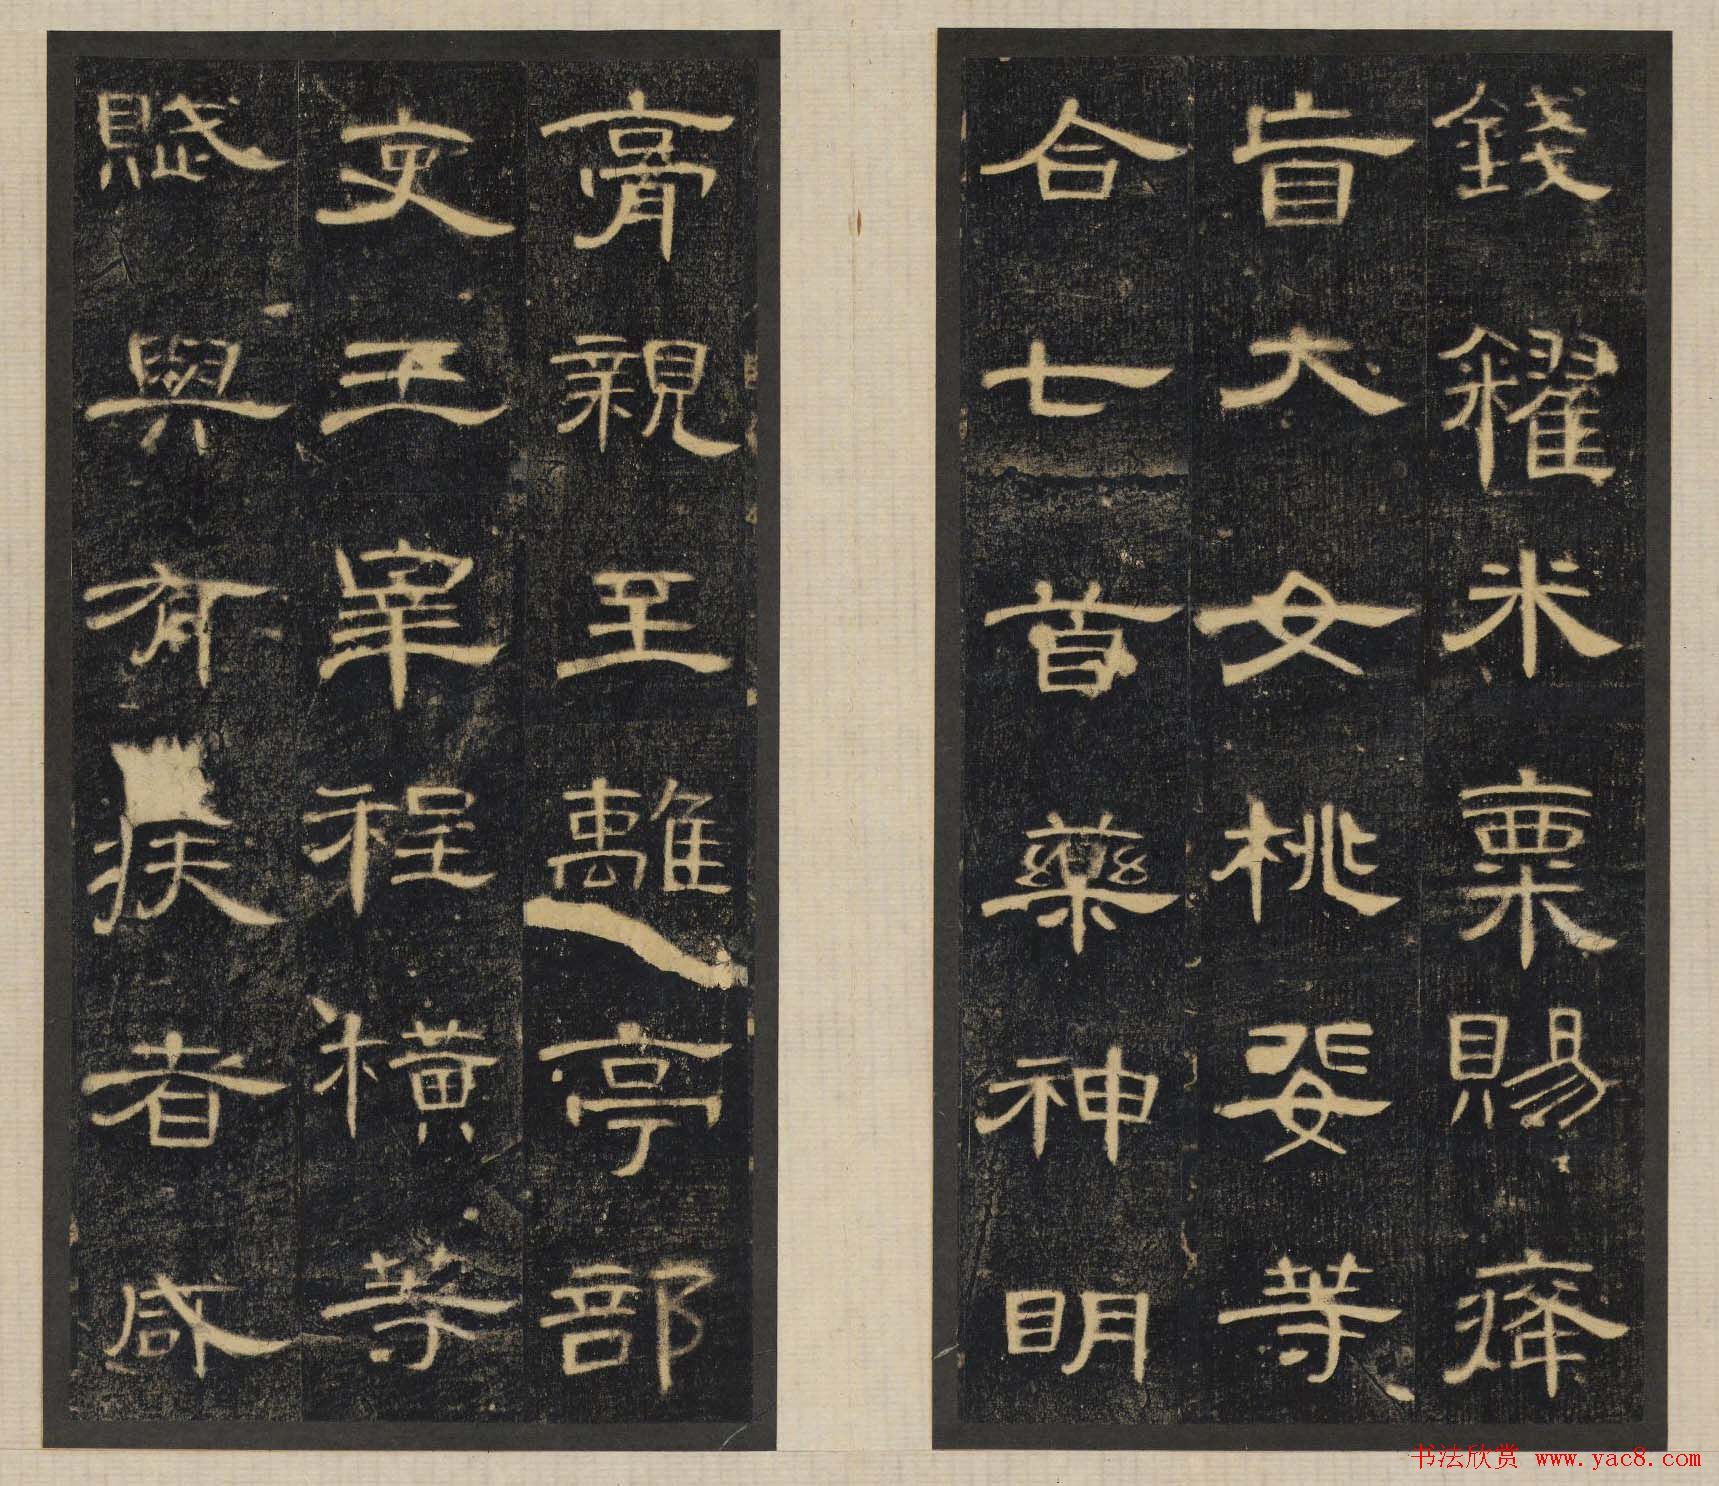 錢糴米粟賜瘽
盲大女桃婓等
合七首藥神明
膏親至離亭部
吏王宰程橫等
賦與有疾者咸
书法欣赏 www.yac8.com